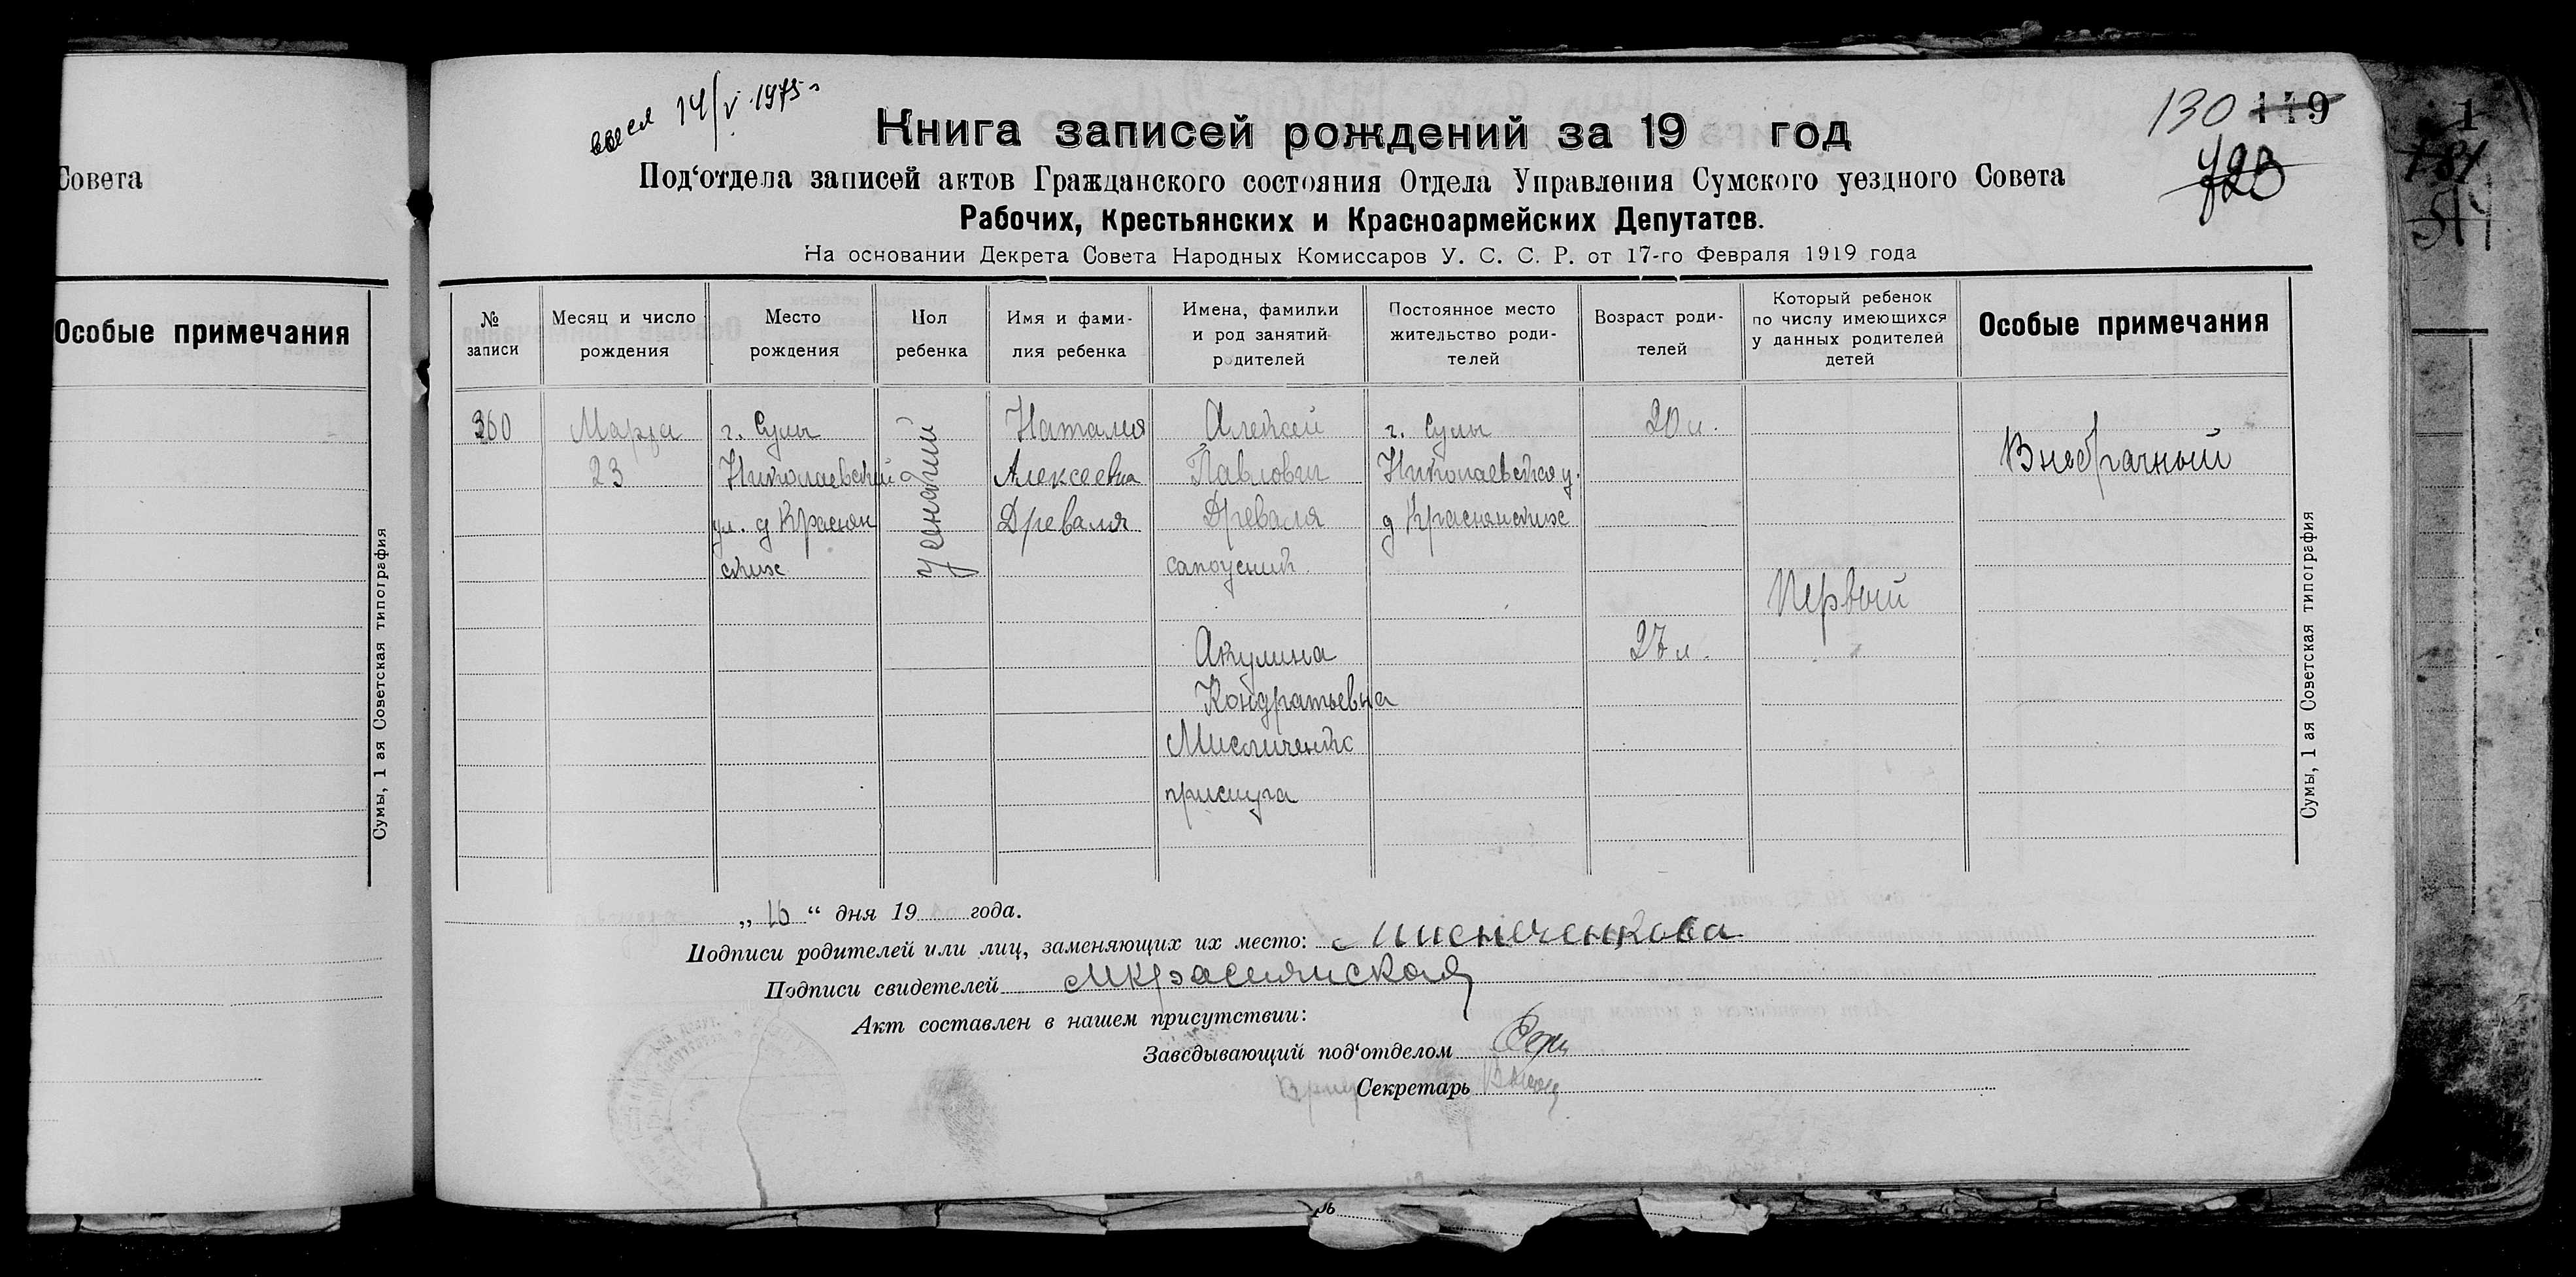 Совета
Особые примечания
Сумы, 1 ая Советская типография
14/V 1975 г
Книга записей рождений за 19 год
130 119
Под‘отдела записей актов Гражданского состояния Отдела Управления Сумского уездного Совета
Рабочих, Крестьянских и Красноармейских Депутатов.
На основании Декрета Совета Народных Комиссаров У. С. С. Р. от 17-го Февраля 1919 года
№ записи
Месяц и число рождения
Место рождения
Пол ребенка
Имя и фами-
лия ребенка
Имена, фамилии
и род занятий
родителей
Постоянное место
жительство роди-
телей
Возраст роди-
телей
Который ребенок
по числу имеющихся
у данных родителей
детей
Особые примечания
360
Марта
23
г. Сумы
Николаевский
ул. д Краснян
ских
женский
Наталия
Алексеевна
Древаля
Алексей
Павлович
Древаля
Акулина
Кондратьевна
прислуга
г. Сумы
Николаевская у.
д Краснянских
20 л.
27 л.
Первый
Внебрачный
Сумы, 1 ая Советская типография
„ 16 “ дня 19 года.
Подписи родителей или лиц, заменяющих их место:
Подписи свидетелей МКраснянская
Акт составлен в нашем присутствии:
Заведывающий под‘отделом
Секретарь